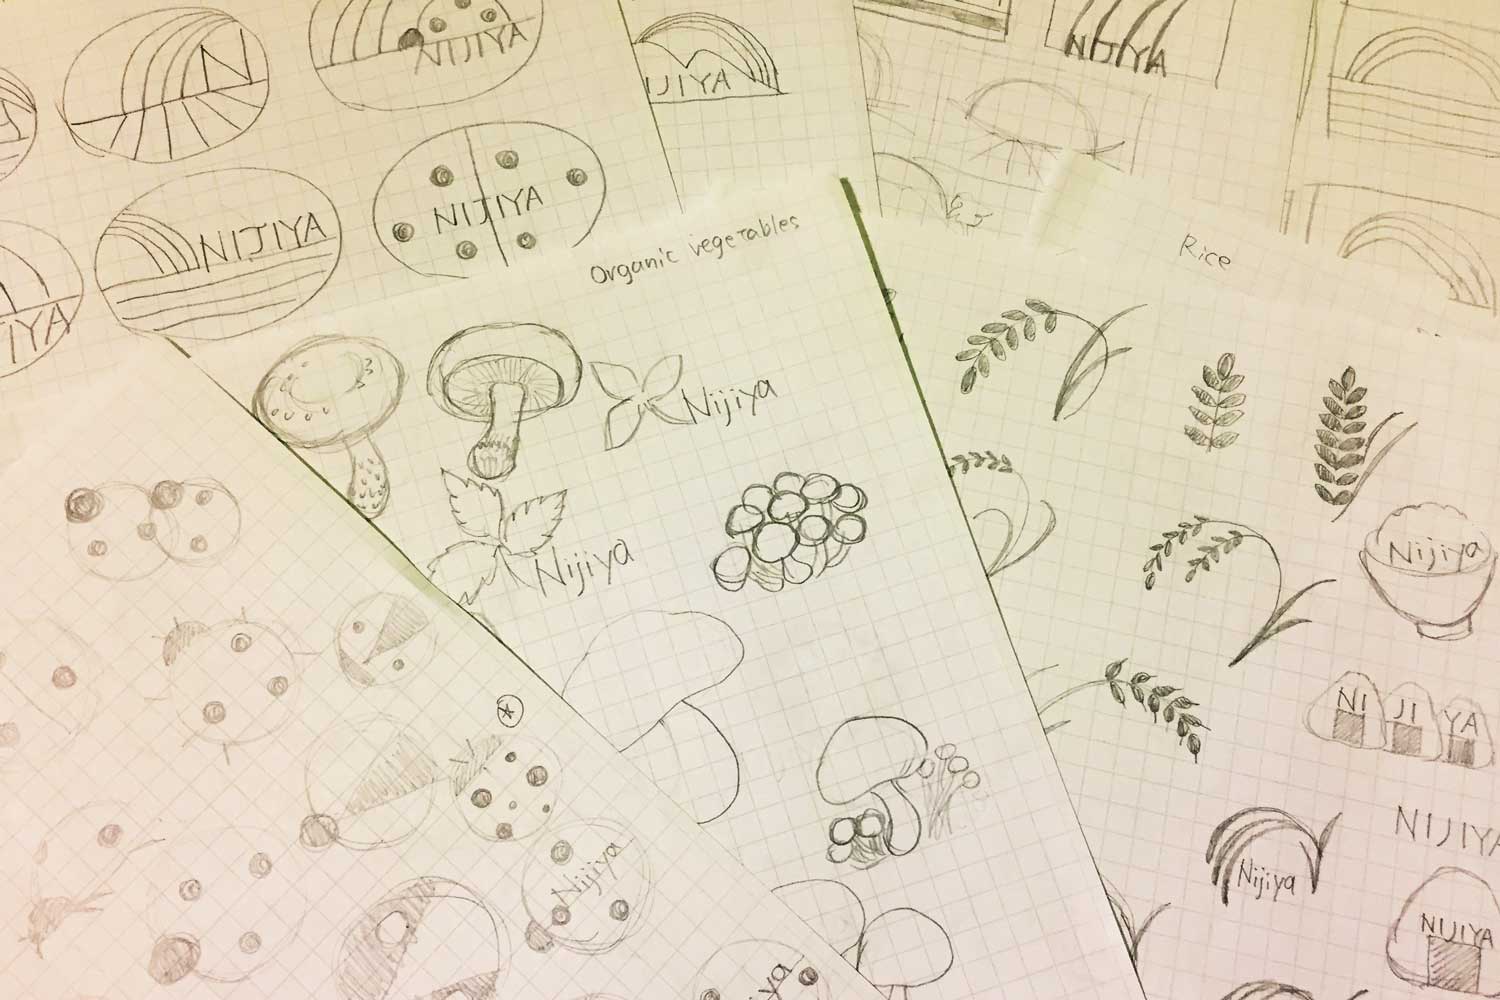 N
NIJIYA
IJIYA
NIJIYA
NIJIYA
NIJIYA
IYA
Organic vegetables
Nijiya
Nijiya
Rice
Nijiya
NI JI YA
NIJIYA
Nijiya
NIJIYA
Nijiya
iya